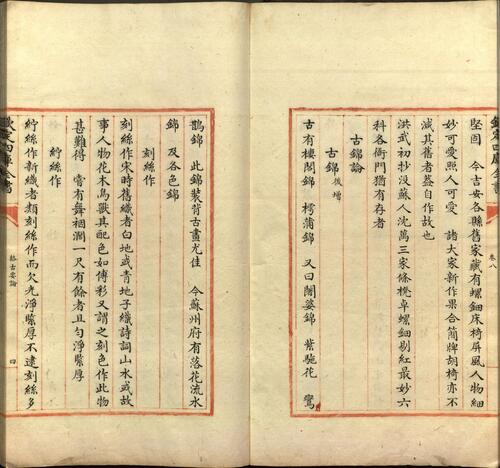 欽定四庫全書
卷八
堅固　今吉安各縣舊家藏有螺鈿床椅屏風人物細
妙可愛照人可愛　諸大家新作果合簡牌胡椅亦不
減其舊者蓋自作故也
洪武初抄没蘇人沈萬三家條櫈卓螺鈿剔紅最妙六
科各衙門猶有存者
古錦論
古錦後增
古有樓閣錦　樗蒲錦　又曰闍婆錦　紫駞花　鸞
鵲錦　此錦裝背古畫尤佳　今蘇州府有落花流水
錦　及各色錦
刻絲作
刻絲作宋時舊織者白地或青地子織詩詞山水或故
事人物花木鳥獸其配色如傅彩又謂之刻色作此物
甚難得　嘗有舞裀濶一尺有餘者且勻淨緊厚
紵絲作
紵絲作新織者類刻絲作而欠光淨緊厚不逮刻絲多
欽定四庫全書
格古要論
四